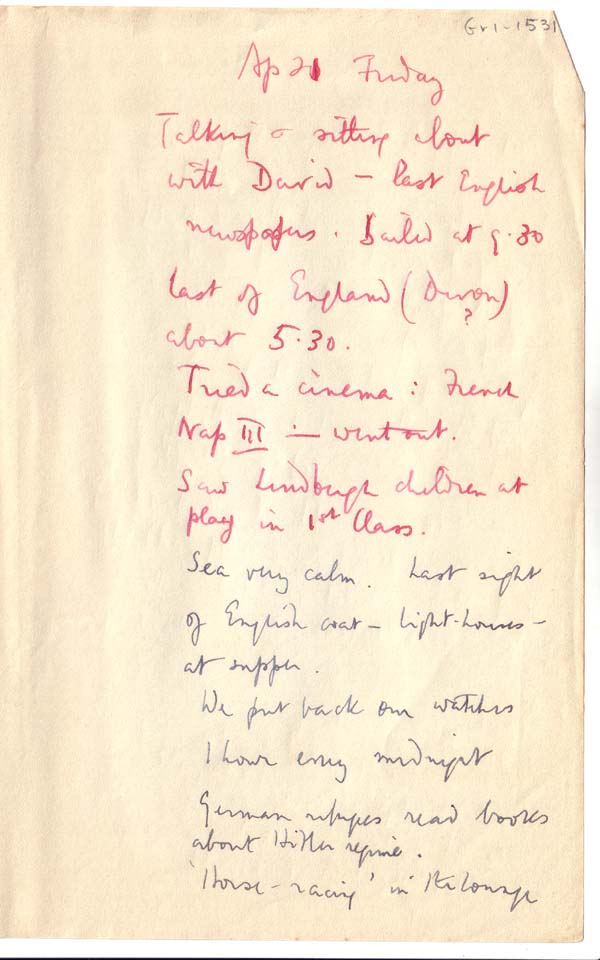 Gr1-1531
Ap 21 Friday
Talking & sitting about
with David – last English
newspapers. Sailed at 9.30
last of England (Devon)
?
about 5.30.
Tried a cinema : French
Nap III – went out.
Saw Lindbergh children at
play in 1st Class.
Sea very calm. Last sight
of English coat – light-houses –
at supper.
We put back our watches
1 hour every midnight
German refugees read books
about Hitler regime.
'Horse-racing' in the lounge